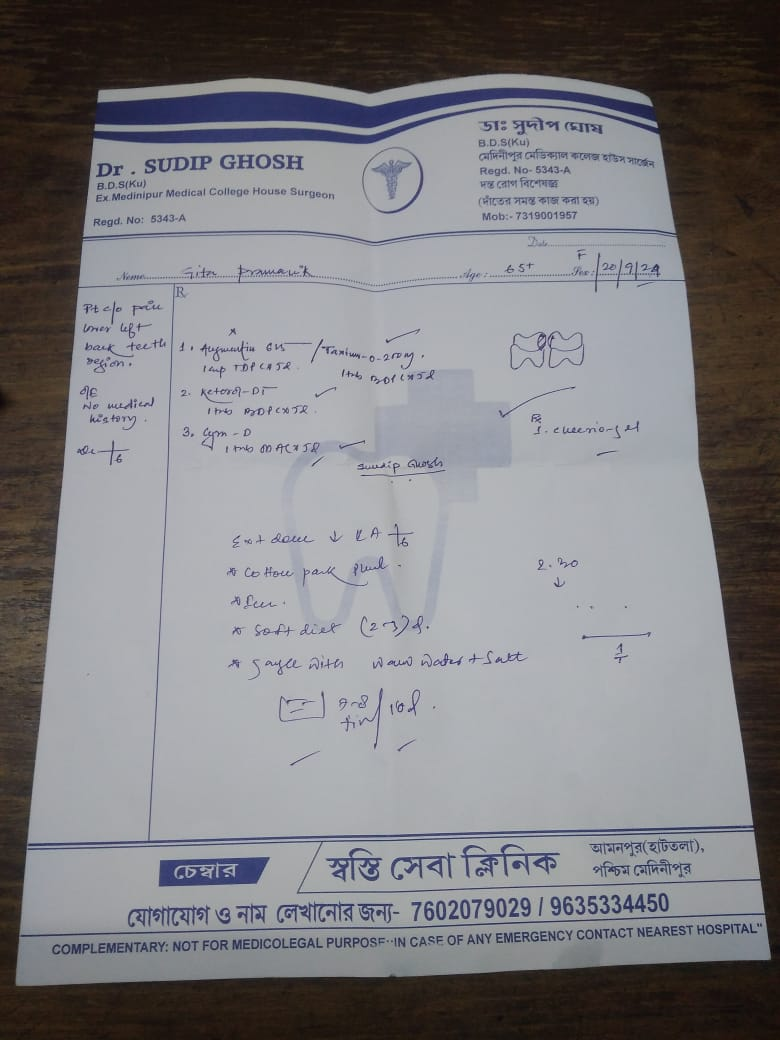 Dr . SUDIP GHOSH
B.D.S(Ku)
Ex.Medinipur Medical College House Surgeon
Regd. No: 5343-A
ডাঃ সুদীপ ঘোষ
B.D.S(Ku)
মেদিনীপুর মেডিক্যাল কলেজ হাউস সার্জেন
Regd. No- 5343-A
দন্ত রোগ বিশেষজ্ঞ
(দাঁতের সমস্ত কাজ করা হয়)
Mob:- 7319001957
Date
Name Gita Pramanik Age: 65+ Sex: F 20/9/24
Pt c/o pain
lower left
back teeth
region.
O/E
No medical
history.
R
1. Augmentin 625 / Taxim-O-200mg.
1 cap TDPC x 5d 1 tab BDPC x 5d
2. Ketorol-DT
1 tab BDPC x 5d
3. Cym-D
1 tab
Sudip Ghosh
Rx
1. gel
Ext done ↓ LA 6
* Cotton pack
* Soft diet (2-3)d.
* Gargle with warm water + Salt
7-8 / 10d.
2.30
↓
চেম্বার
স্বস্তি সেবা ক্লিনিক
আমনপুর(হাটতলা),
পশ্চিম মেদিনীপুর
যোগাযোগ ও নাম লেখানোর জন্য- 7602079029 / 9635334450
COMPLEMENTARY: NOT FOR MEDICOLEGAL PURPOSE "IN CASE OF ANY EMERGENCY CONTACT NEAREST HOSPITAL"